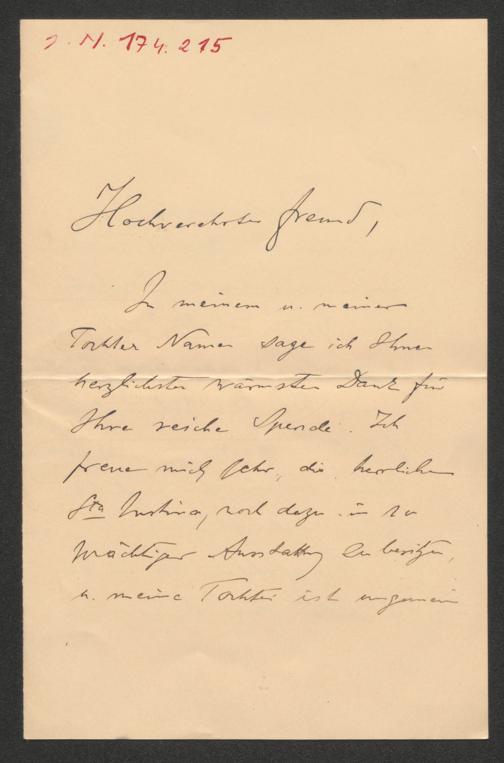 J. N. 174.215
Hochverehrter Freund,
In meinem u. meiner
Tochter Namen sage ich Ihnen
herzlichsten wärmsten Dank für
Ihre reiche Spende. Ich
freue mich sehr, die herrliche
Sta Justina, noch dazu in so
prächtiger Ausstattung zu besitzen,
u. meine Tochter ist ungemein